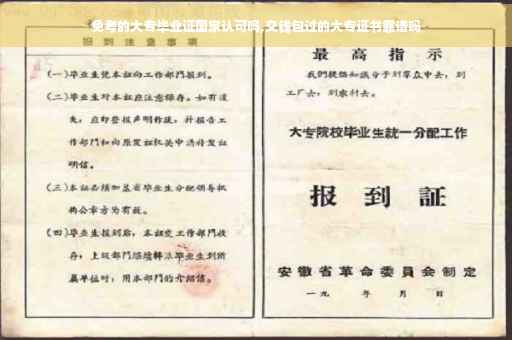 免考的大专毕业证国家认可吗,交钱包过的大专证书靠谱吗
报到注意事项
(一)毕业生凭本证向工作部門报到。
(二)毕业生对本证应注意保存。如有遺
失,应即登报声明作废,并报告工
作部門和向原发证机关申請补发证
明信。
(三)本证必须加盖省毕业生分配领导机
构公章方为有效。
(四)毕业生报到后,本证交工作部門收
存;上级部門继續轉派毕业生到所
属单位时,用本部門的介绍信。
最高指示
我們提倡知識分子到羣众中去,到
工厂去,到农村去。
大专院校毕业生統一分配工作
报到証
安徽省革命委員会制定
一九 年 月 日